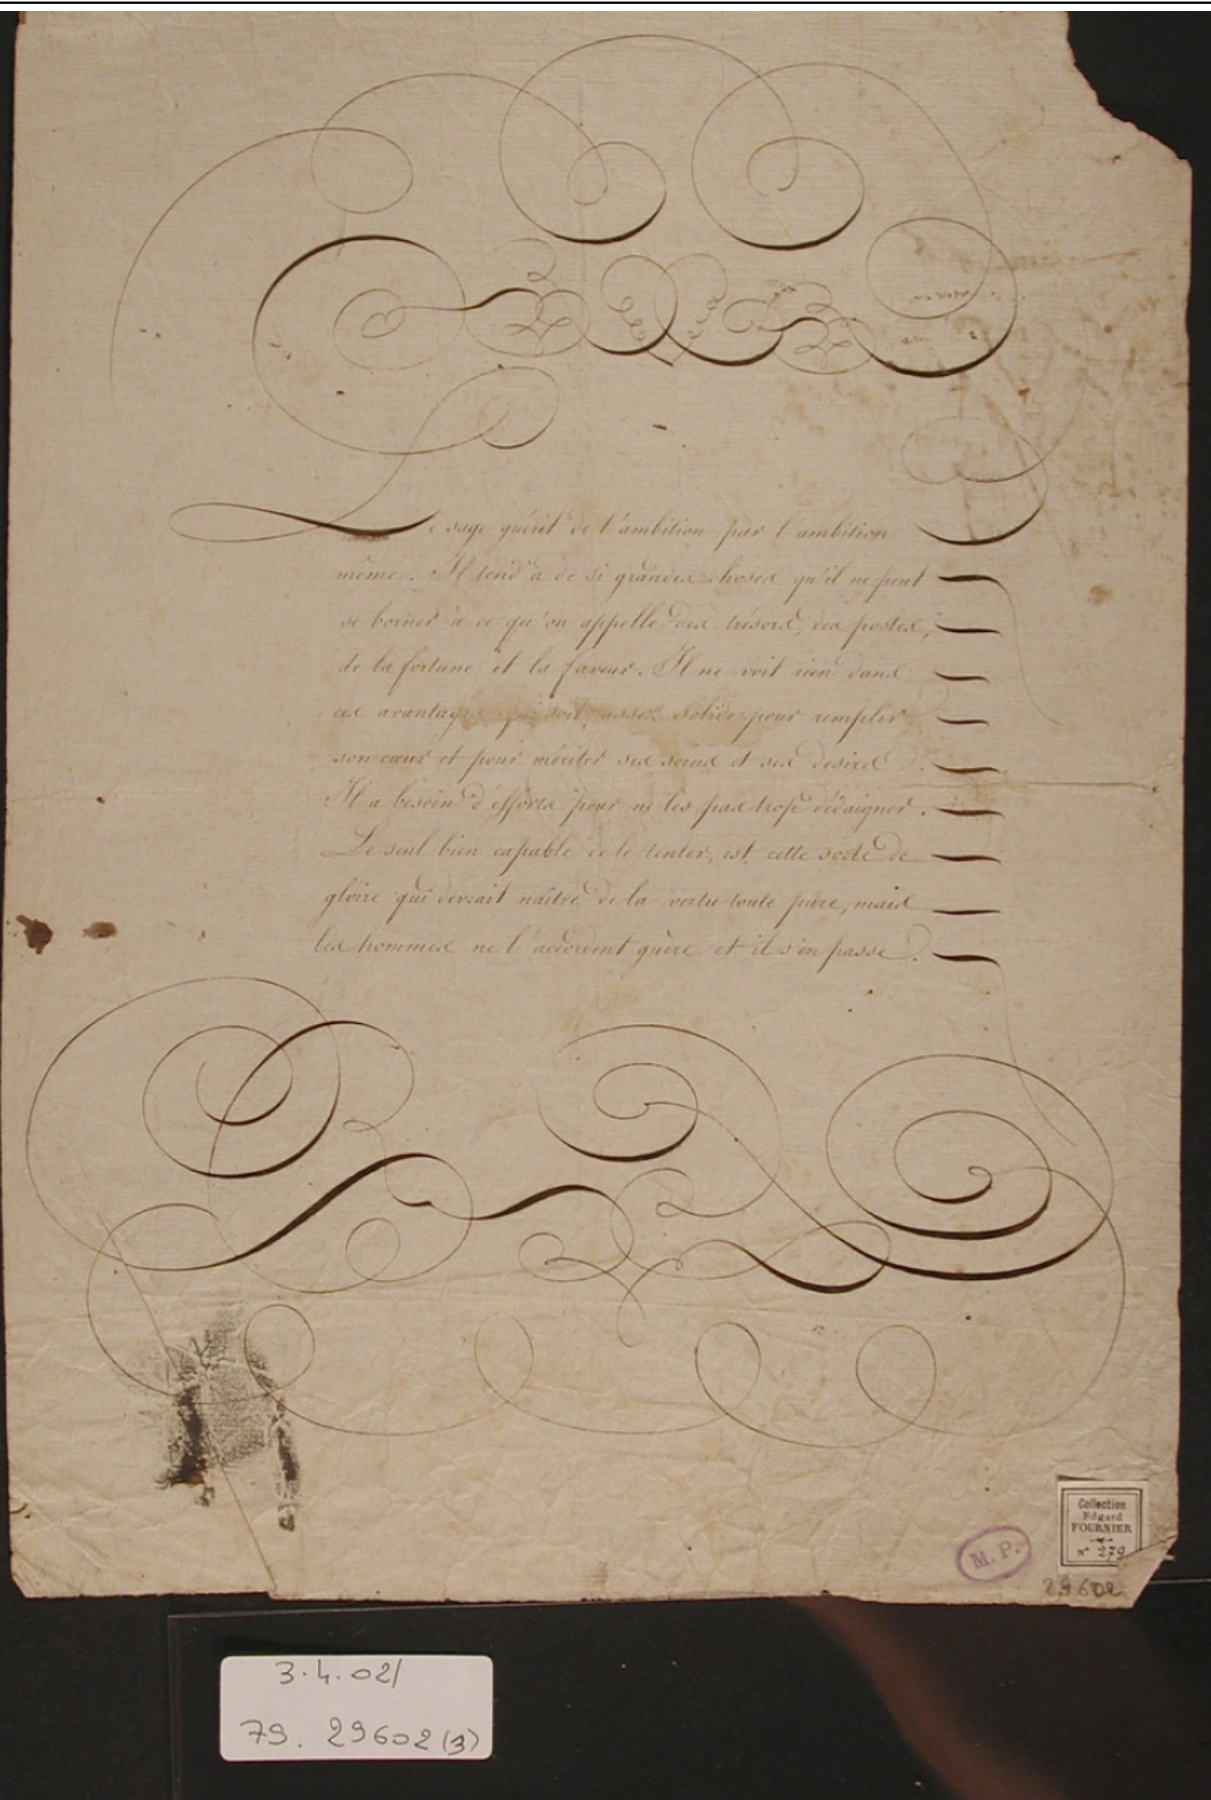 Le sage guérit de l'ambition par l'ambition
même. Il tend à de si grandes choses qu'il ne peut
se borner à ce qu'on appelle des trésors, des postes,
de la fortune et la faveur. Il ne voit rien dans
ces avantages qui soit assez solide pour remplir
son cœur et pour mériter ses soins et ses desirs.
Il a besoin d'efforts pour ne les pas trop dédaigner.
Le seul bien capable de le tenter, est cette sorte de
gloire qui devrait naître de la vertu toute pure, mais
les hommes ne l'accordent guère et il s'en passe.
Collection
Edgard
FOURNIER
N° 279
M. P.
29602
3.4.02/
79. 29602 (3)